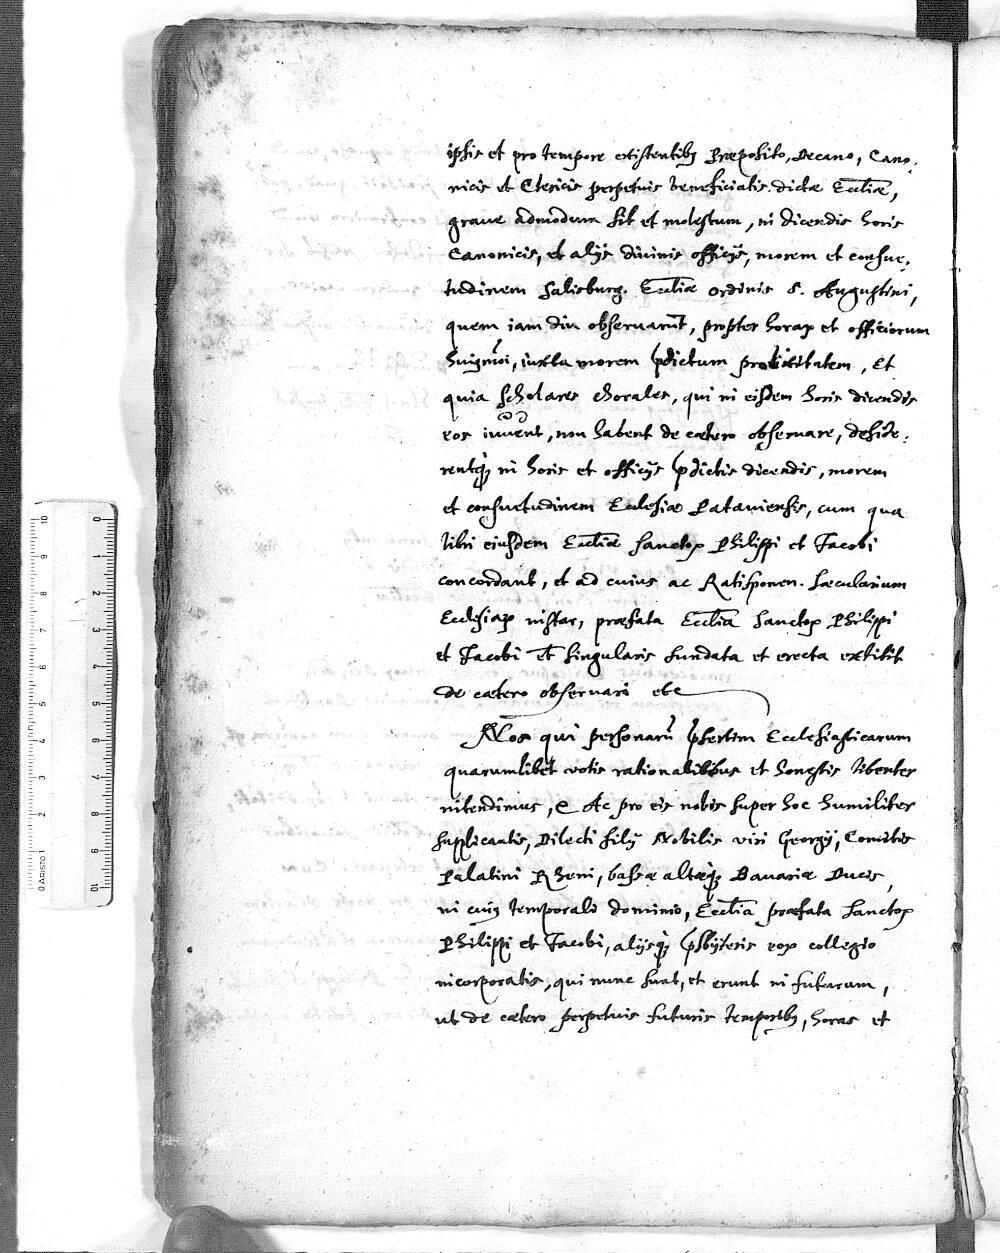 ipsis et pro tempore existentibus Præposito, Decano, Cano,
nicis et Clericis perpetuis beneficiatis dictæ Eccliæ,
graue admodum sit et molestum, in dicendis horis
Canonicis, et alijs diuinis officijs, morem et consue,
tudinem Salisburg. Eccliæ ordinis S. Augustini,
quem iam diu obseruarūt, propter horaꝝ et officiorum
huigmōi, iuxta morem p̄dictum prolixitatem, Et
quia Scholares chorales, qui in eisdem horis dicendis
eos iuuent, non habent de cætero obseruare, deside,
rentq̢ in horis et officijs p̄dictis dicendis, morem
et consuetudinem Ecclesiæ Patauiensis, cum qua
libri eiusdem Eccliæ Sanctoꝝ Philippi et Jacobi
concordant, et ad cuius ac Ratisponen. Sæcularium
Ecclesiaꝝ instar, præfata Ecclia Sanctoꝝ Philippi
et Jacobi et singularis fundata et erecta extitit
de cætero obseruari etc
Nos qui personarū p̄sertim Ecclesiasticarum
quarumlibet votis rationabilibus et honestis libenter
intendimus, Ac pro eis nobis super hoc humiliter
supplicantis, Dilecti filij Nobilis viri Georgij, Comitis
Palatini Rheni, bassæ altæq̢ Bauariæ Ducis,
in cuiꝰ temporali dominio, Ecclia præfata Sanctoꝝ
Philippi et Jacobi, alijsq̢ p̄sbyteris eoꝝ collegio
incorporatis, qui nunc sunt, et erunt in futurum,
ut de cætero perpetuis futuris temporibꝰ, horas et